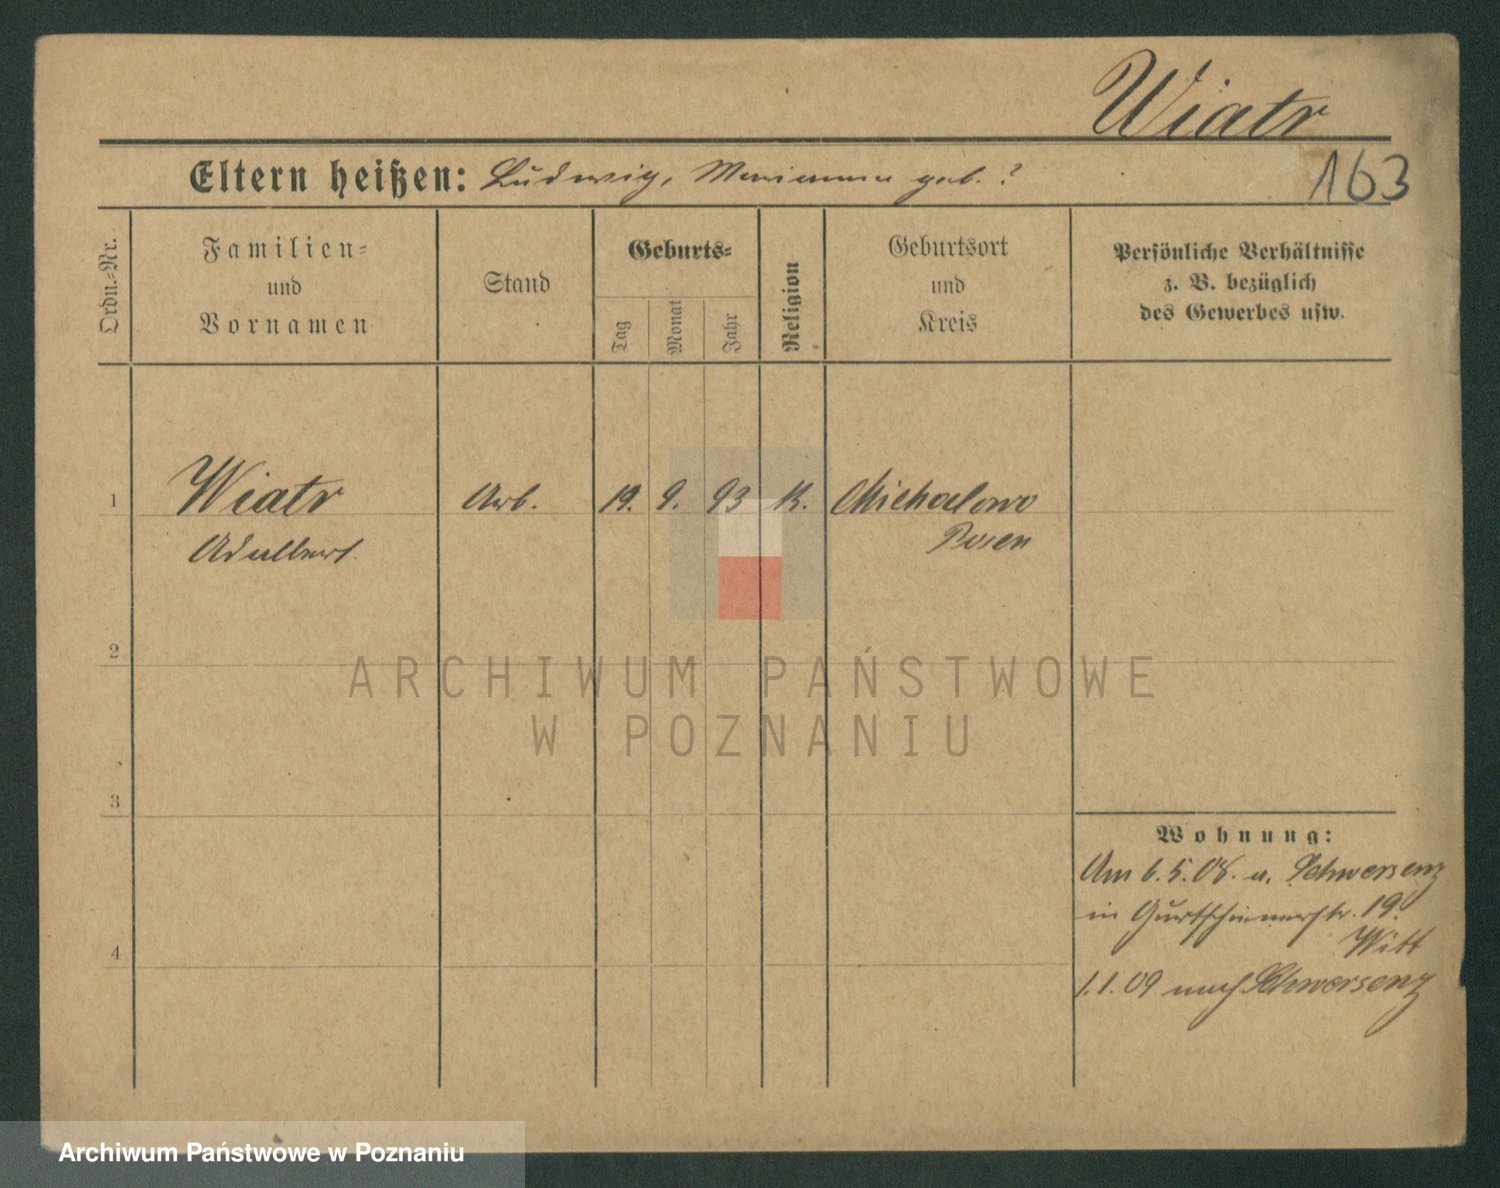 Wiatr
163
Eltern heißen: Ludwig, Marianna geb. ?
Ordn.-Nr.
Familien-
und
Vornamen
Stand
Geburts-
Tag
Monat
Jahr
Religion
Geburtsort
und
Kreis
Persönliche Verhältnisse
z. B. bezüglich
des Gewerbes usw.
1 Wiatr Arb. 19. 9. 93 K. Michalowo
Adalbert Posen
2
3
4
Wohnung:
Am 6.5.08. a. Schwersenz
in Gurtschinerstr. 19.
Witt
1.1.09 nach Schwersenz
ARCHIWUM PAŃSTWOWE
W POZNANIU
Archiwum Państwowe w Poznaniu